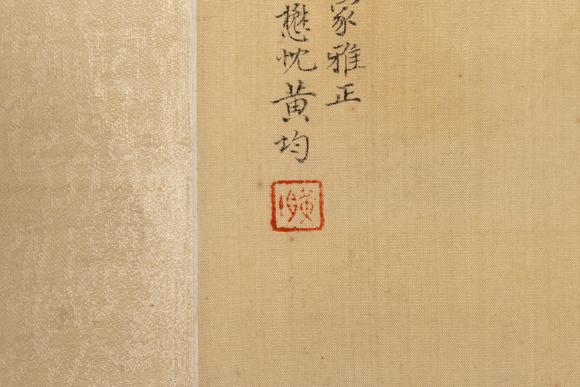 家雅正
懋忱黄均